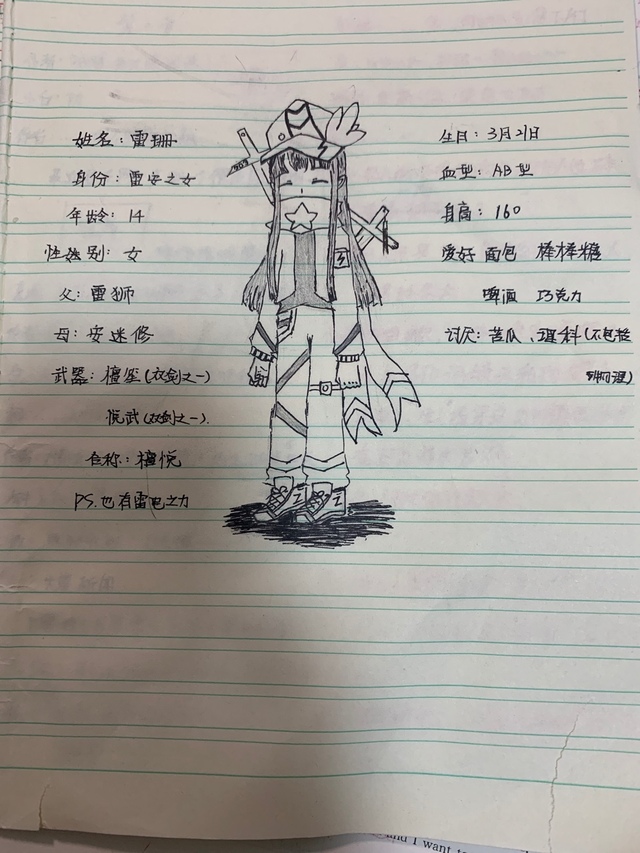 姓名：雷珊
身份：雷安之女
年龄：14
性别：女
父：雷狮
母：安迷修
武器：檀笙(双剑之一)
悦武(双剑之一).
合称：檀悦
PS.也有雷电之力
生日：3月21日
血型：AB型
身高：160
爱好 面包 棒棒糖
啤酒 巧克力
讨厌：苦瓜、理科(不包括
物理)
and I want to